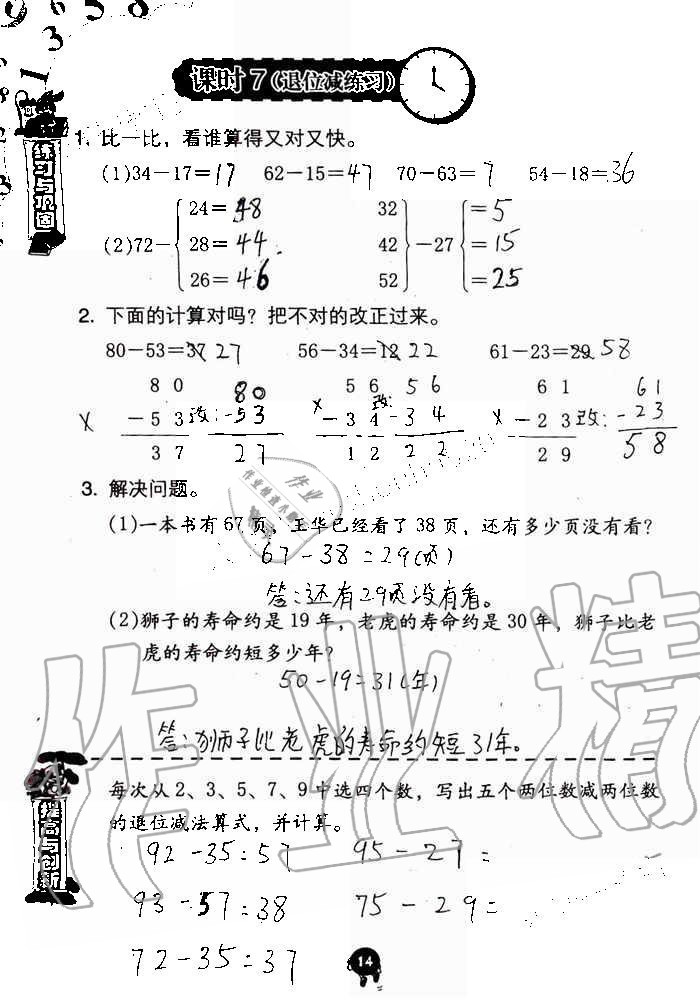 9 6 5 8
3
1
课时 7（退位减练习）
练习与巩固
1. 比一比，看谁算得又对又快。
(1)34－17＝17 62－15＝47 70－63＝7 54－18＝36
24＝38 32 ＝5
(2)72－ 28＝44. 42 －27 ＝15
26＝46 52 ＝25
2. 下面的计算对吗？把不对的改正过来。
80－53＝37 27 56－34＝12 22 61－23＝29 58
8 0 80 5 6 5 6 6 1 61
× －5 3 改: －53 × －3 4 改: －3 4 × －2 3 改: －23
3 7 27 1 2 2 2 2 9 58
3. 解决问题。
(1)一本书有 67 页，王华已经看了 38 页，还有多少页没有看？
67－38＝29(页)
答:还有29页没有看。
(2)狮子的寿命约是 19 年，老虎的寿命约是 30 年，狮子比老
虎的寿命约短多少年？
50－19＝31(年)
答:狮子比老虎的寿命约短31年。
提高与创新
每次从 2、3、5、7、9 中选四个数，写出五个两位数减两位数
的退位减法算式，并计算。
92－35＝57 95－27＝
93－57＝38 75－29＝
72－35＝37
14
作业精
作业
作业检查小帮手